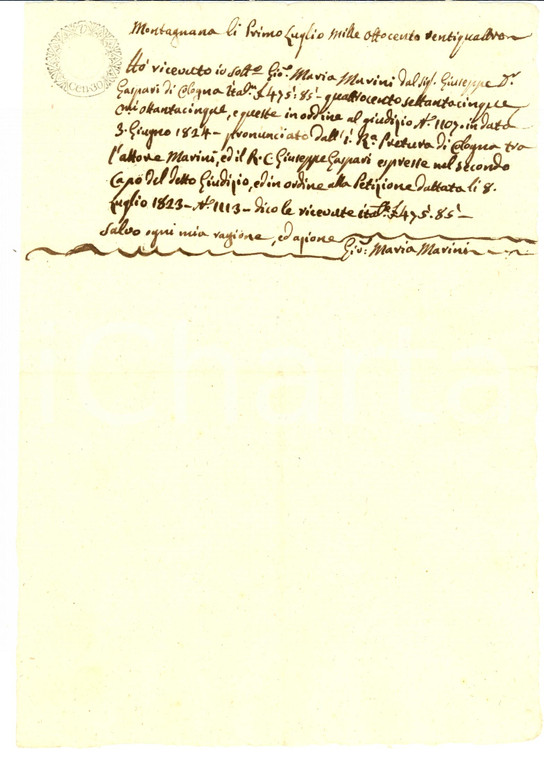 Montagnana li Primo Luglio Mille Ottocento ventiquattro
Cen 30
Hò ricevuto io Sott.o Gio: Maria Marini dal Sig. Giuseppe D.r
Gaspari di Cologna ital.e £ 475:85 - quattrocento settantacinque
Cmi ottantacinque, e queste in ordine al giudizio N.o 1107. in data
3. Giugno 1824 - pronunciato dall' i. R.a Pretura di Cologna tra
l'attore Marini, ed il R. C. Giuseppe Gaspari espresse nel secondo
Capo del detto Giudizio, ed in ordine alla Petizione dattata li 8.
Luglio 1823 - N.o 1113 - dico le ricevute ital.e £ 475:85 -
Salvo ogni mia ragione, ed azione
Gio: Maria Marini
iCharta